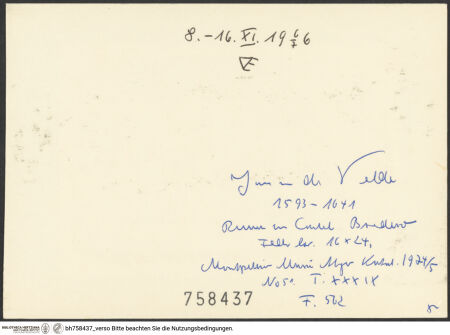 8.-16. XI. 19 6/7 6
Jan v. d. Velde
1593-1641
Ruine von Castel Brederode
Feder lav. 16 x 24,
Montpellier Musée Atger Katal. 1974/5
No 50. T. XXXIX
F. 502
758437
bh758437_verso Bitte beachten Sie die Nutzungsbedingungen.